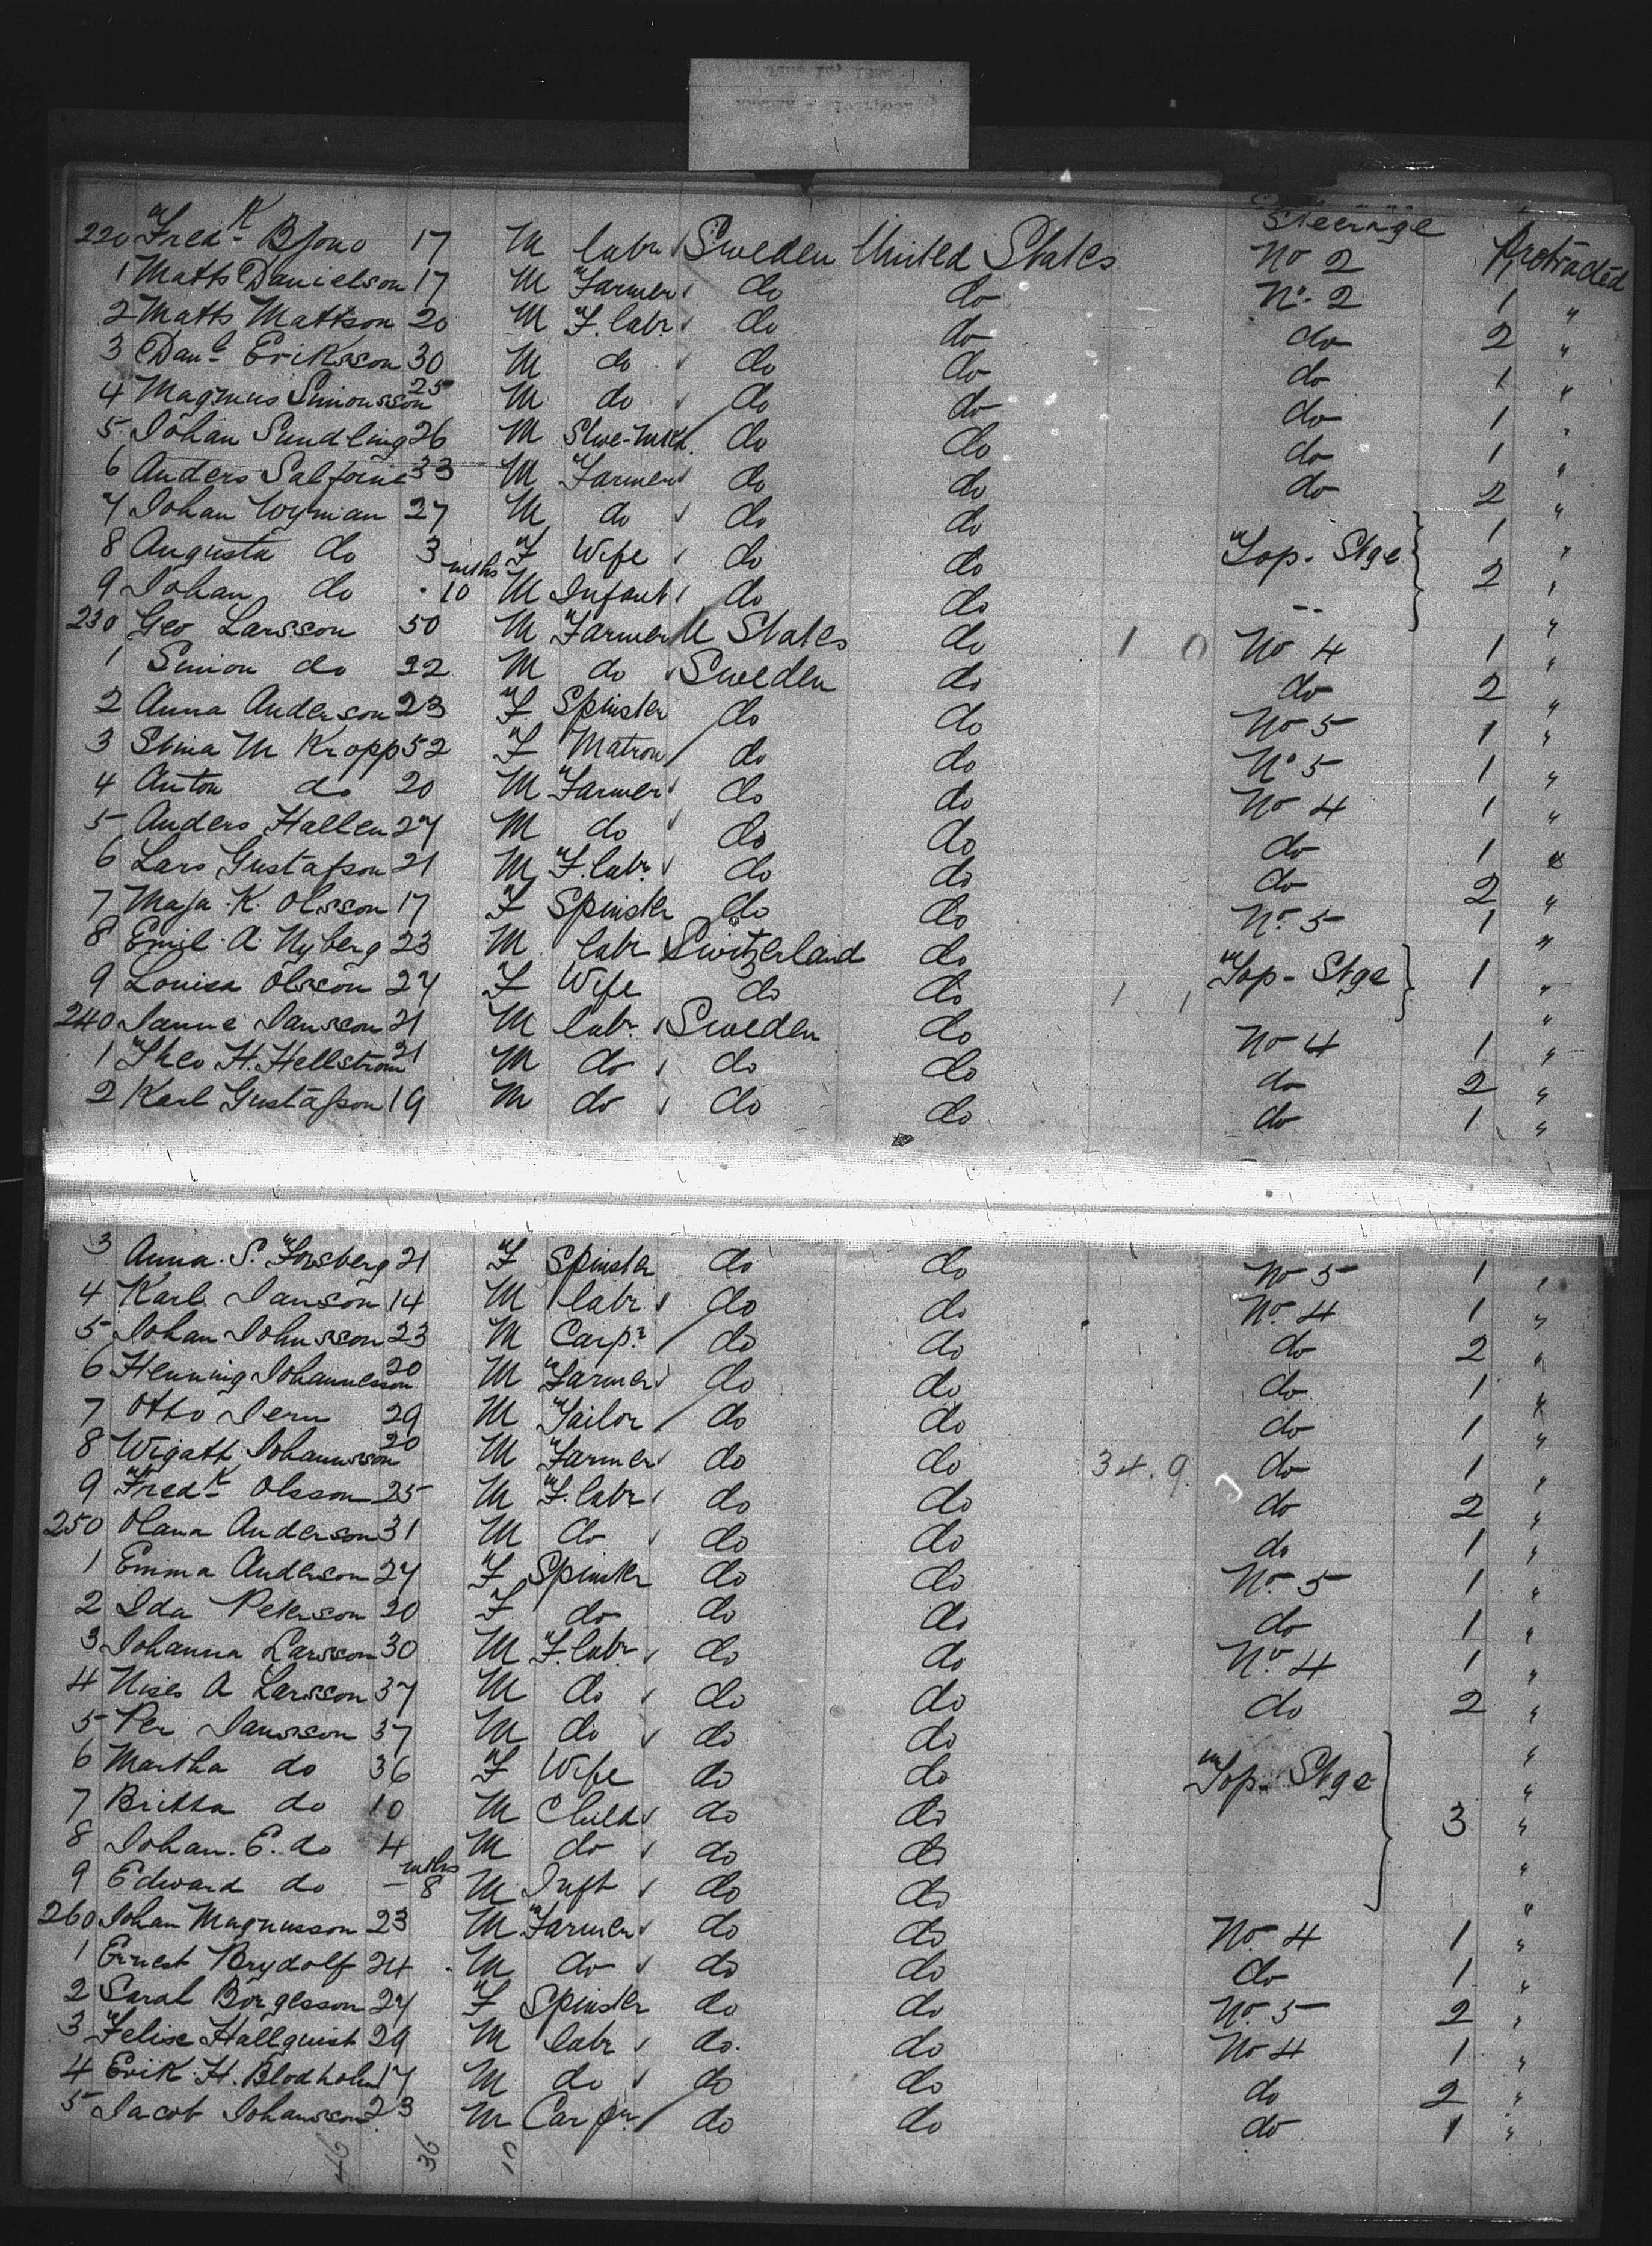 Steerage
220 Fredk Bjono 17 M labr Sweden United States No 2 1 Protracted
1 Matts Danielson 17 M Farmer do do No. 2 1 "
2 Matts Mattson 20 M F. labr do do do 2 "
3 Danl Eriksson 30 M do do do do 1 "
4 Magnus Simonsson 25 M do do do do 1 "
5 Johan Sundling 26 M Shoe-mkr. do do do 1 "
6 Anders 33 M Farmer do do do 2 "
7 Johan Wyman 27 M do do do 1 "
8 Augusta do 3 F Wife do do Top. Stge 2 "
9 Johan do 10 mths M Infant do do -- "
230 Geo Larsson 50 M Farmer U States do 1 0 No 4 1 "
1 Simon do 22 M do Sweden do do 2 "
2 Anna Anderson 23 F Spinster do do No 5 1 "
3 Stina M Kropp 52 F Matron do do No 5 1 "
4 Anton do 20 M Farmer do do No 4 1 "
5 Anders Hallen 27 M do do do do 1 "
6 Lars Gustafson 21 M F. labr. do do do 2 "
7 Maja. K. Olsson 17 F Spinster do do No. 5 1 "
8 Emil. A. Nyberg 23 M labr Switzerland do "
9 Louisa Olsson 27 F Wife do do 1 1 Top - Stge 1 "
240 Janne Jansson 21 M labr. Sweden do No 4 1 "
1 Theo H. Hellstrom 21 M do do do do 2 "
2 Karl Gustafson 19 M do do do do 1 "
3 Anna. S. Forsberg 21 F Spinster do do No 5 1 "
4 Karl Janson 14 M labr do do No. 4 1 "
5 Johan Johnsson 23 M Carpr do do do 2 "
6 Henning Johannesson 20 M Farmer do do do 1 "
7 Otto Jern 29 M Tailor do do do 1 "
8 Johannsson 20 M Farmer do do 34. 9 do 1 "
9 Fredk Olsson 25 M F. labr do do do 2 "
250 Olana Anderson 31 M do do do do 1 "
1 Emma Anderson 27 F Spinster do do No. 5 1 "
2 Ida Peterson 20 F do do do do 1 "
3 Johanna Larsson 30 M F. labr do do No. 4 1 "
4 A Larsson 37 M do do do do 2 "
5 Per Jansson 37 M do do do "
6 Martha do 36 F Wife do do Top - Stge "
7 Britta do 10 M Child do do 3 "
8 Johan. E. do 4 M do do do "
9 Edward do - 8 mths M Inft do do "
260 Johan Magnusson 23 M Farmer do do No. 4 1 "
1 Ernest Brydolf 24 M do do do do 1 "
2 Sarah Borgesson 27 F Spinster do do No. 5 2 "
3 Felix Hallquist 29 M labr do. do No 4 1 "
4 Erik. H. Blodholm 17 M do do do do 2 "
5 Jacob Johansson 23 M Carpr do do do 1 "
46 36 10